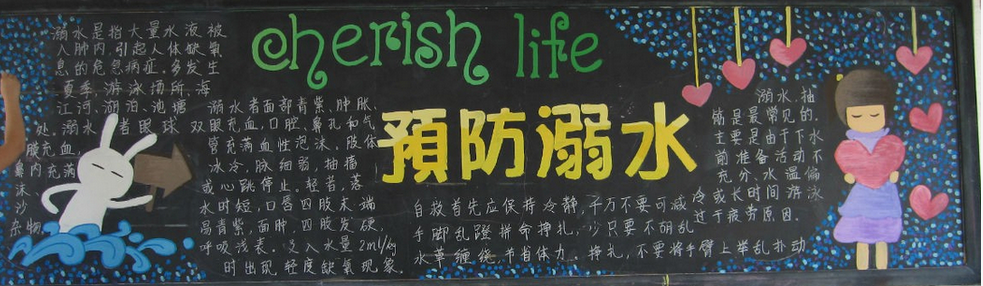 cherish life
預防溺水
溺水是指大量水液被
入肺内,引起人体缺氧
息的危急病症。多发生
夏季,游泳场所、海
江河、湖泊、池塘
处。溺水者眼球
膜充血,
鼻内充满
沫、
沙
杂物
溺水者面部青紫、肿胀、
双眼充血,口腔、鼻孔和气
管充满血性泡沫。肢体
冰冷,脉细弱,抽搐
或心跳停止。轻者,落
水时短,口唇四肢末端
易青紫,面肿,四肢发硬,
呼吸浅表。吸入水量2ml/kg
时出现轻度缺氧现象。
自救首先应保持冷静,千万不要可减
手脚乱蹬拼命挣扎,少只要不胡乱
水草缠绕,节省体力。挣扎,不要将手臂上举乱扑动
溺水、抽
搐是最常见的。
主要是由于下水
前准备活动不
充分、水温偏
冷或长时间游泳
过于疲劳原因。